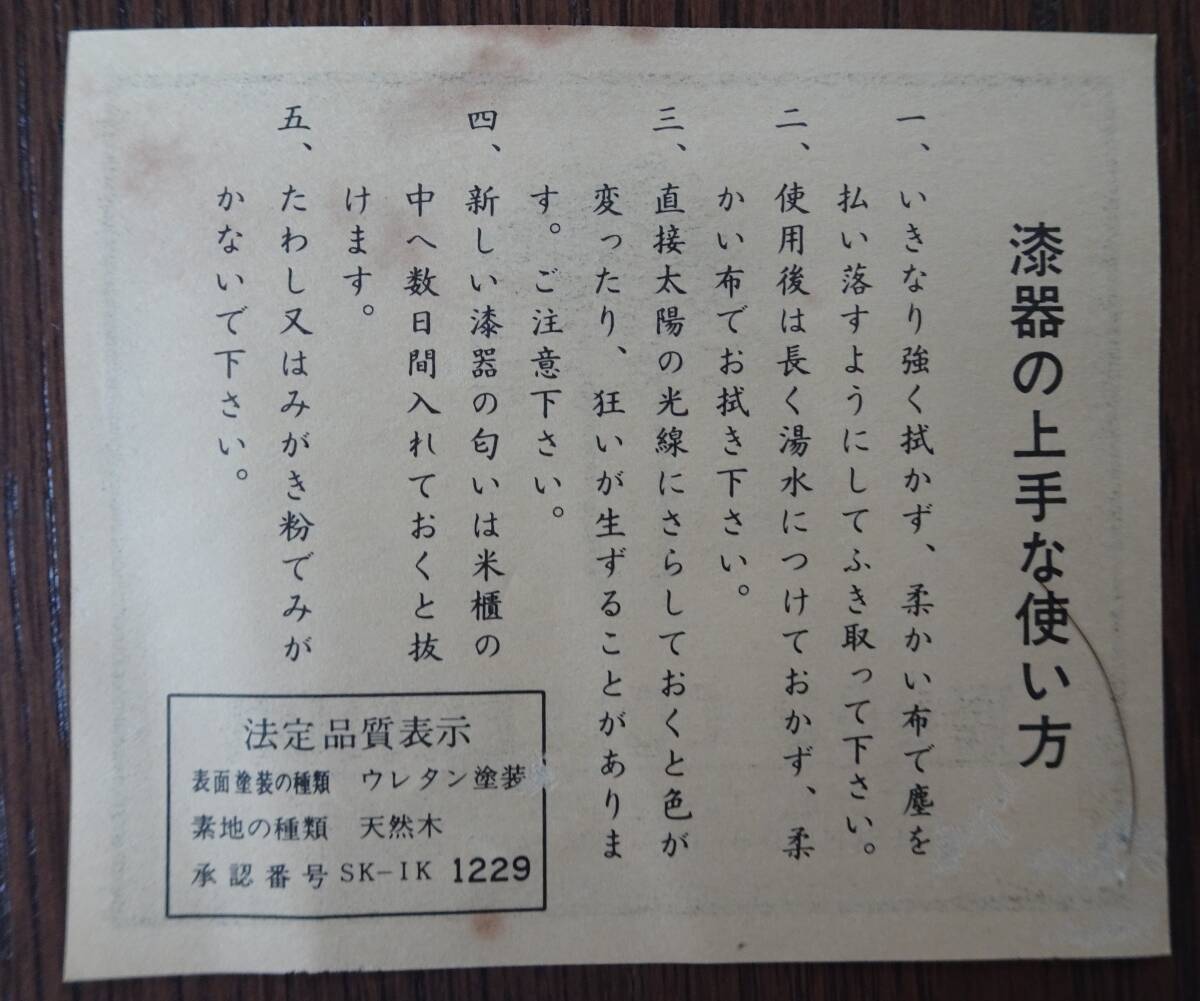 漆器の上手な使い方
一、いきなり強く拭かず、柔かい布で塵を
払い落すようにしてふき取って下さい。
二、使用後は長く湯水につけておかず、柔
かい布でお拭き下さい。
三、直接太陽の光線にさらしておくと色が
変ったり、狂いが生ずることがありま
す。ご注意下さい。
四、新しい漆器の匂いは米櫃の
中へ数日間入れておくと抜
けます。
五、たわし又はみがき粉でみが
かないで下さい。
法定品質表示
表面塗装の種類 ウレタン塗装
素地の種類 天然木
承認番号 SK-IK 1229